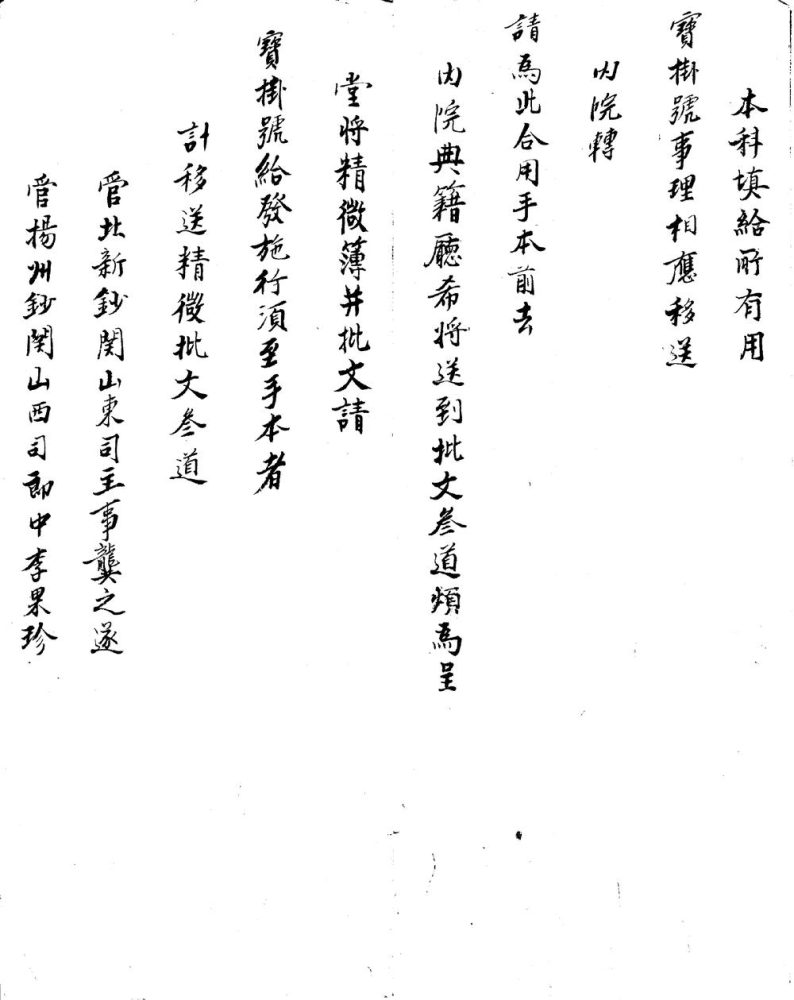 本科填給所有用
寶掛號事理相應移送
內院轉
請為此合用手本前去
內院典籍廳希將送到批文叁道煩為呈
堂將精微簿并批文請
寶掛號給發施行須至手本者
計移送精微批文叁道
管北新鈔関山東司主事龔之遂
管揚州鈔関山西司郎中李果珍